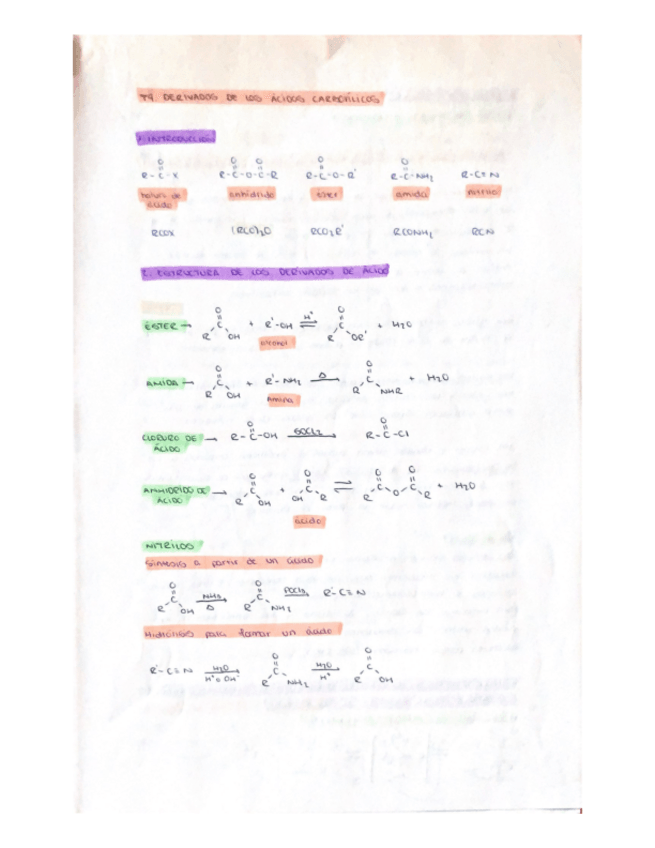 T9. DERIVADOS DE LOS ÁCIDOS CARBOXÍLICOS
1. INTRODUCCIÓN
O O O O O
R-C-X R-C-O-C-R R-C-O-R' R-C-NH2 R-C≡N
haluro de ácido anhídrido ester amida nitrilo
RCOX (RCO)2O RCO2R' RCONH2 RCN
2. ESTRUCTURA DE LOS DERIVADOS DE ÁCIDO
ÉSTER → R-C(=O)-OH + R'-OH ⇌ H+ R-C(=O)-OR' + H2O
alcohol
AMIDA → R-C(=O)-OH + R'-NH2 → Δ R-C(=O)-NHR + H2O
Amina
CLORURO DE ÁCIDO → R-C(=O)-OH → SOCl2 R-C(=O)-Cl
ANHIDRIDO DE ÁCIDO → R-C(=O)-OH + OH-C(=O)-R ⇌ R-C(=O)-O-C(=O)-R + H2O
ácido
NITRILOS
Síntesis a partir de un ácido
R-C(=O)-OH → NH3 Δ R-C(=O)-NH2 → POCl3 R-C≡N
Hidrólisis para formar un ácido
R-C≡N → H2O H+ o OH- R-C(=O)-NH2 → H2O H+ R-C(=O)-OH